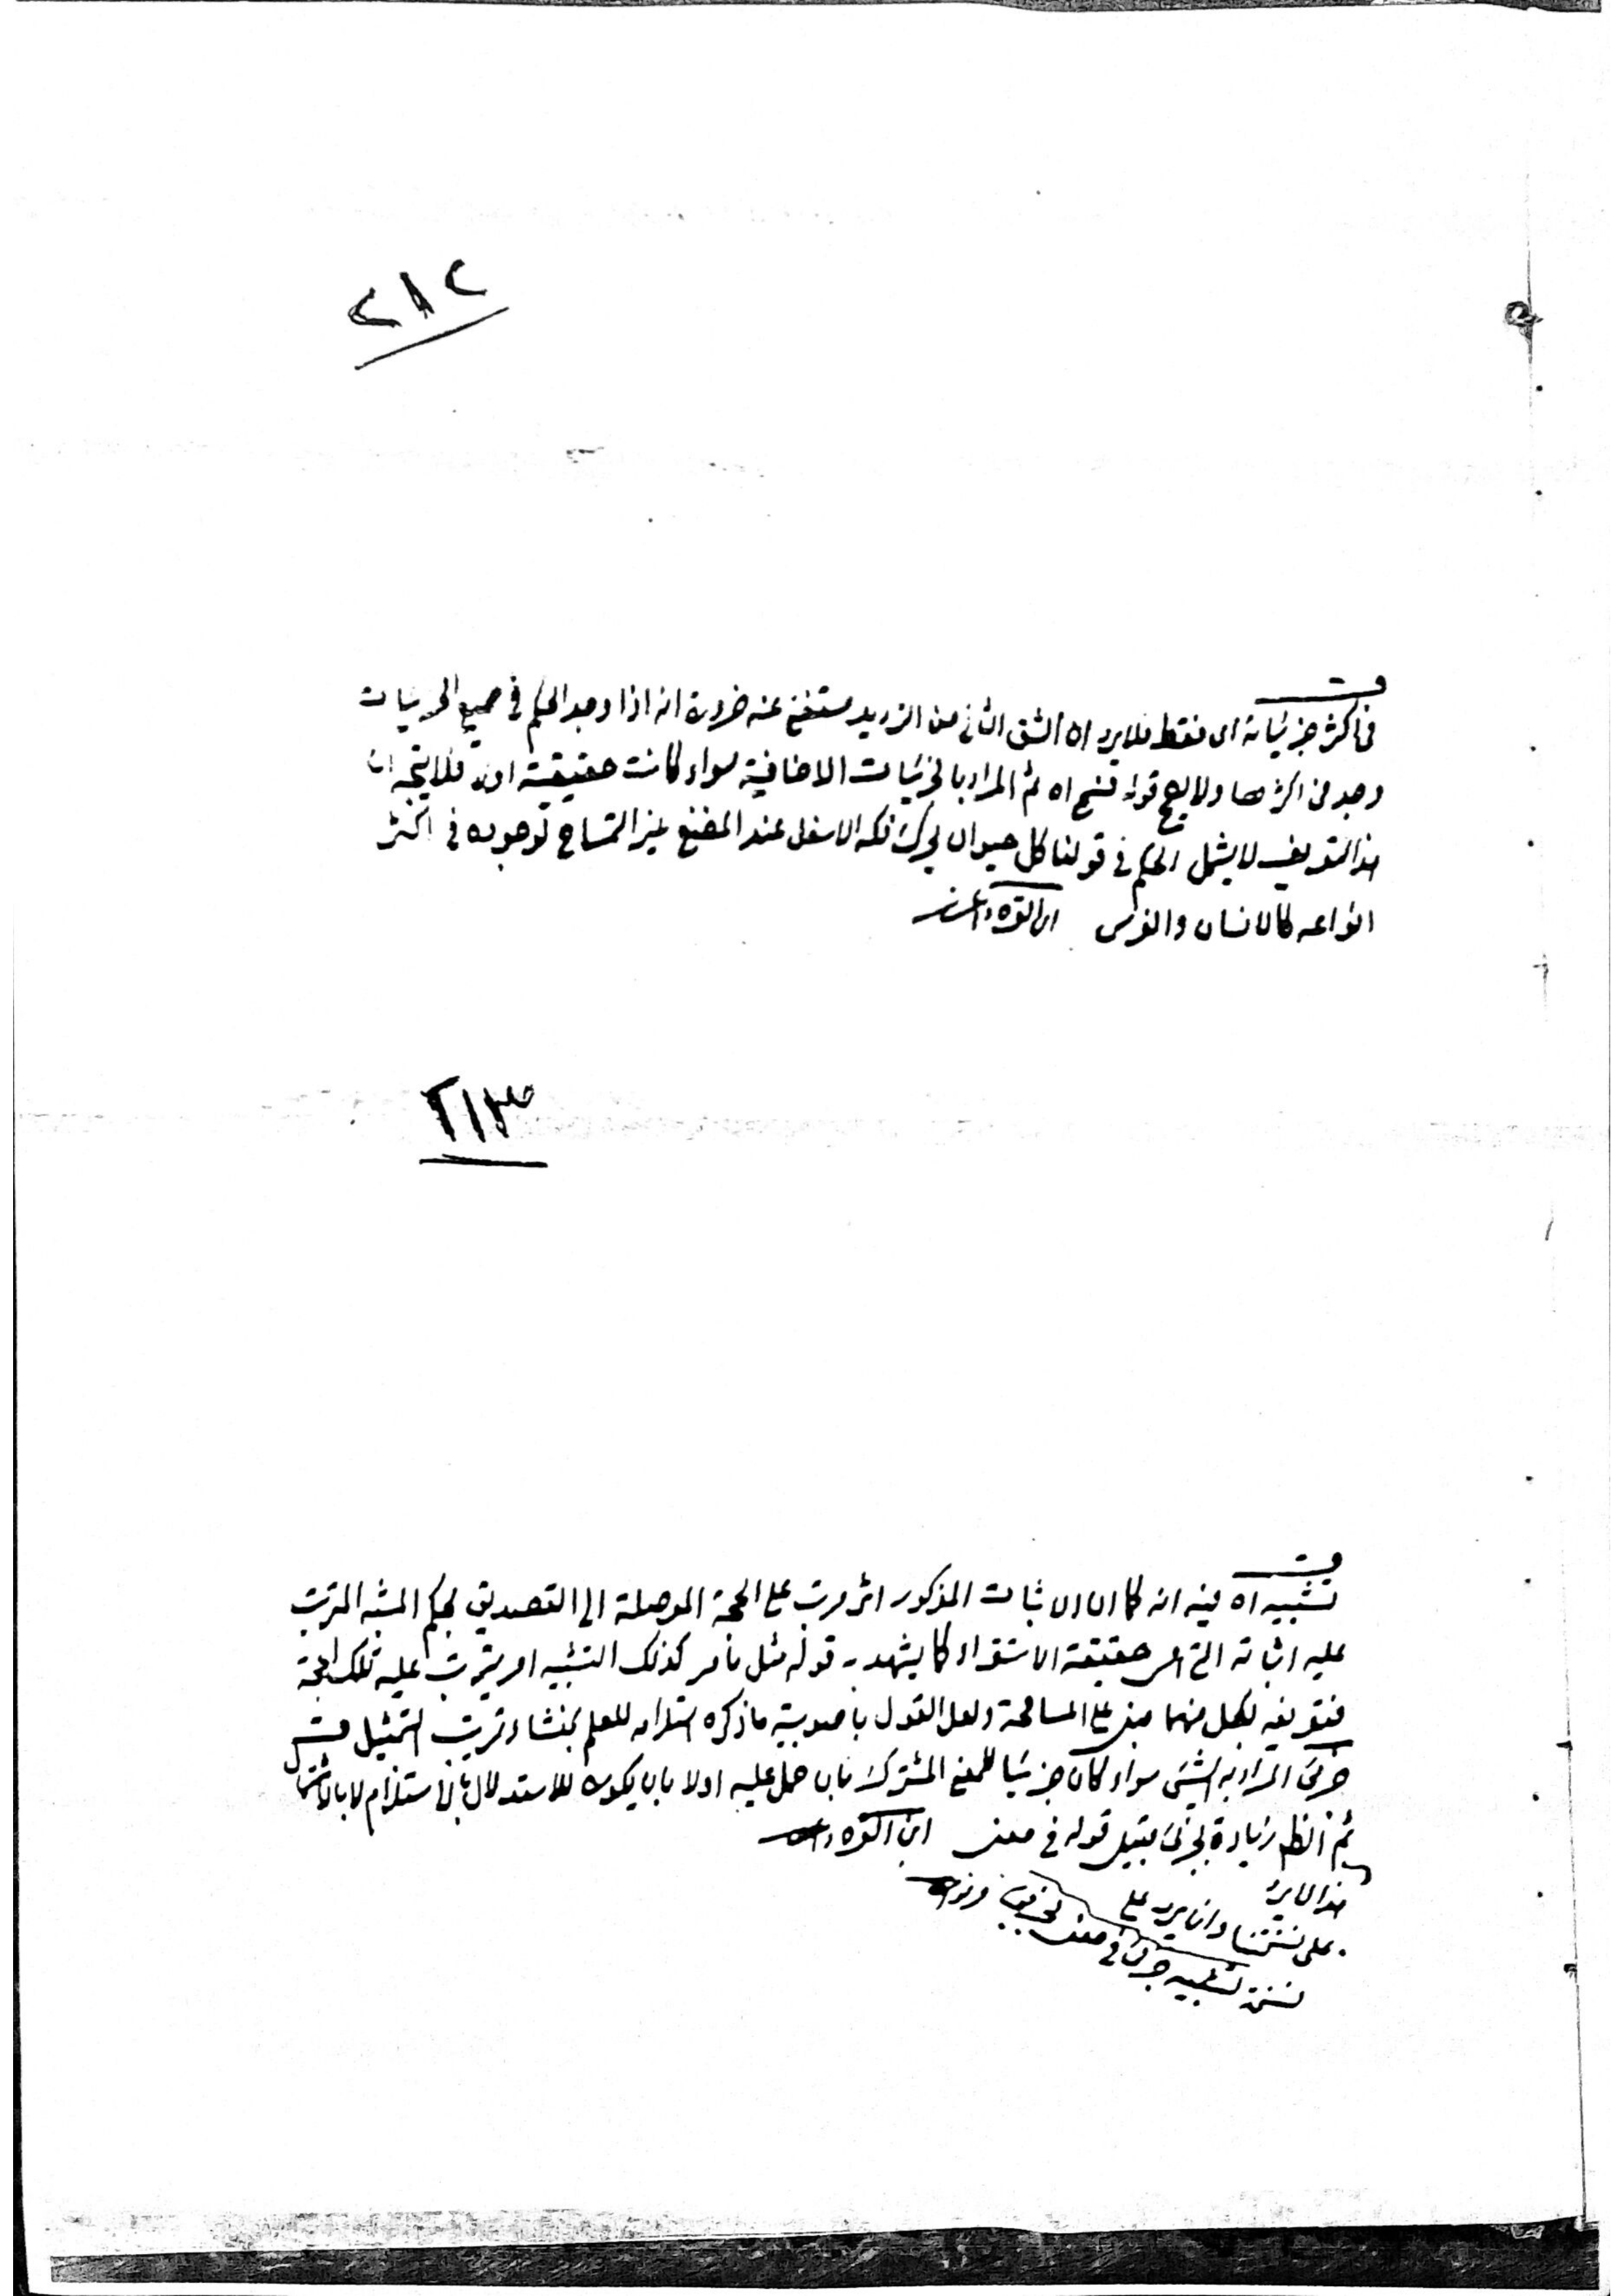 ٢١٢
في اكثر جزئياته اى فقط فلا يرد ان الشق الثاني من الترديد مستغنى عنه ضرورة انه اذا وجد الحكم في جميع الجزئيات
وجد في اكثرها ولا يصح قوله اه ثم المراد بالجزئيات الاضافية سواء كانت حقيقية او لا فلا يتجه ان
هذا التعريف لا يشمل الحكم في قولنا كل حيوان يحرك فكه الاسفل عند المضغ غير التمساح لوجوده في اكثر
انواعه كالانسان والفرس ابن القره داغى
٢١٣
تشبيه اه فيه انه كما ان الاثبات المذكور اثر مرتب على الحجة الموصلة الى التصديق بحكم المشبه المترتب
عليه اثباته الخ حقيقة الاستقراء كما يشهد به قوله مثل ما مر كذلك التشبيه امر يترتب عليه تلك الحجة
فتعريفه بكل منهما مبنى على المسامحة ولعل القول باصوبية ما ذكره استلزامه للعلم بمنشاء ترتيب التمثيل
جزئى المراد به الشيئ سواء كان جزئيا للمعنى المشترك بان حمل عليه اولا بان يكون للاستدلال بالاستلزام لا بالاشتمال
ثم زيادة لجزئى قبيل قوله في معنى ابن القره داغى
هذا لا يرد
على نسختنا وان يرد على
نسخة تشبيه جزئى في معنى